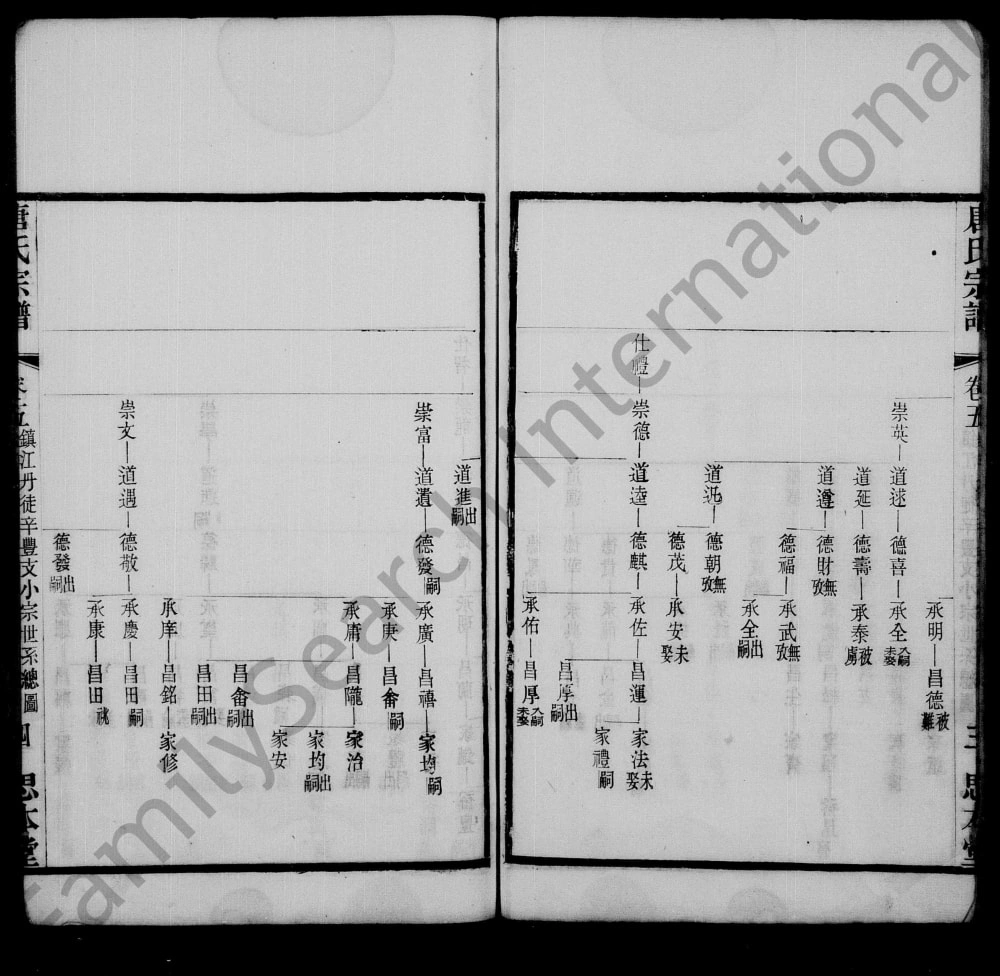 唐氏宗譜
卷五
三
思本堂
承明—昌德 被難
崇英—道逑—德喜—承全 入嗣 未娶
道延—德壽—承泰 被虜
道遵—德財 無攷
德福—承武 無攷
承全 出嗣
道𣲘—德朝 無攷
德茂—承安 未娶
仕體—崇德—道逵—德麒—承佐—昌運—家法 未娶
家禮 嗣
昌厚 出嗣
承佑—昌厚 入嗣 未娶
道進 出嗣
崇富—道遺—德發 嗣—承廣—昌禧—家均 嗣
承庚—昌畬 嗣
承庸—昌隴—家治
家均 出嗣
家安
昌畬 出嗣
昌田 出嗣
承庠—昌銘—家修
崇文—道遇—德敬—承慶—昌田 嗣
承康—昌田 祧
德發 出嗣
唐氏宗譜
卷五
鎮江丹徒辛豐支小宗世系總圖
四
思本堂
FamilySearch International